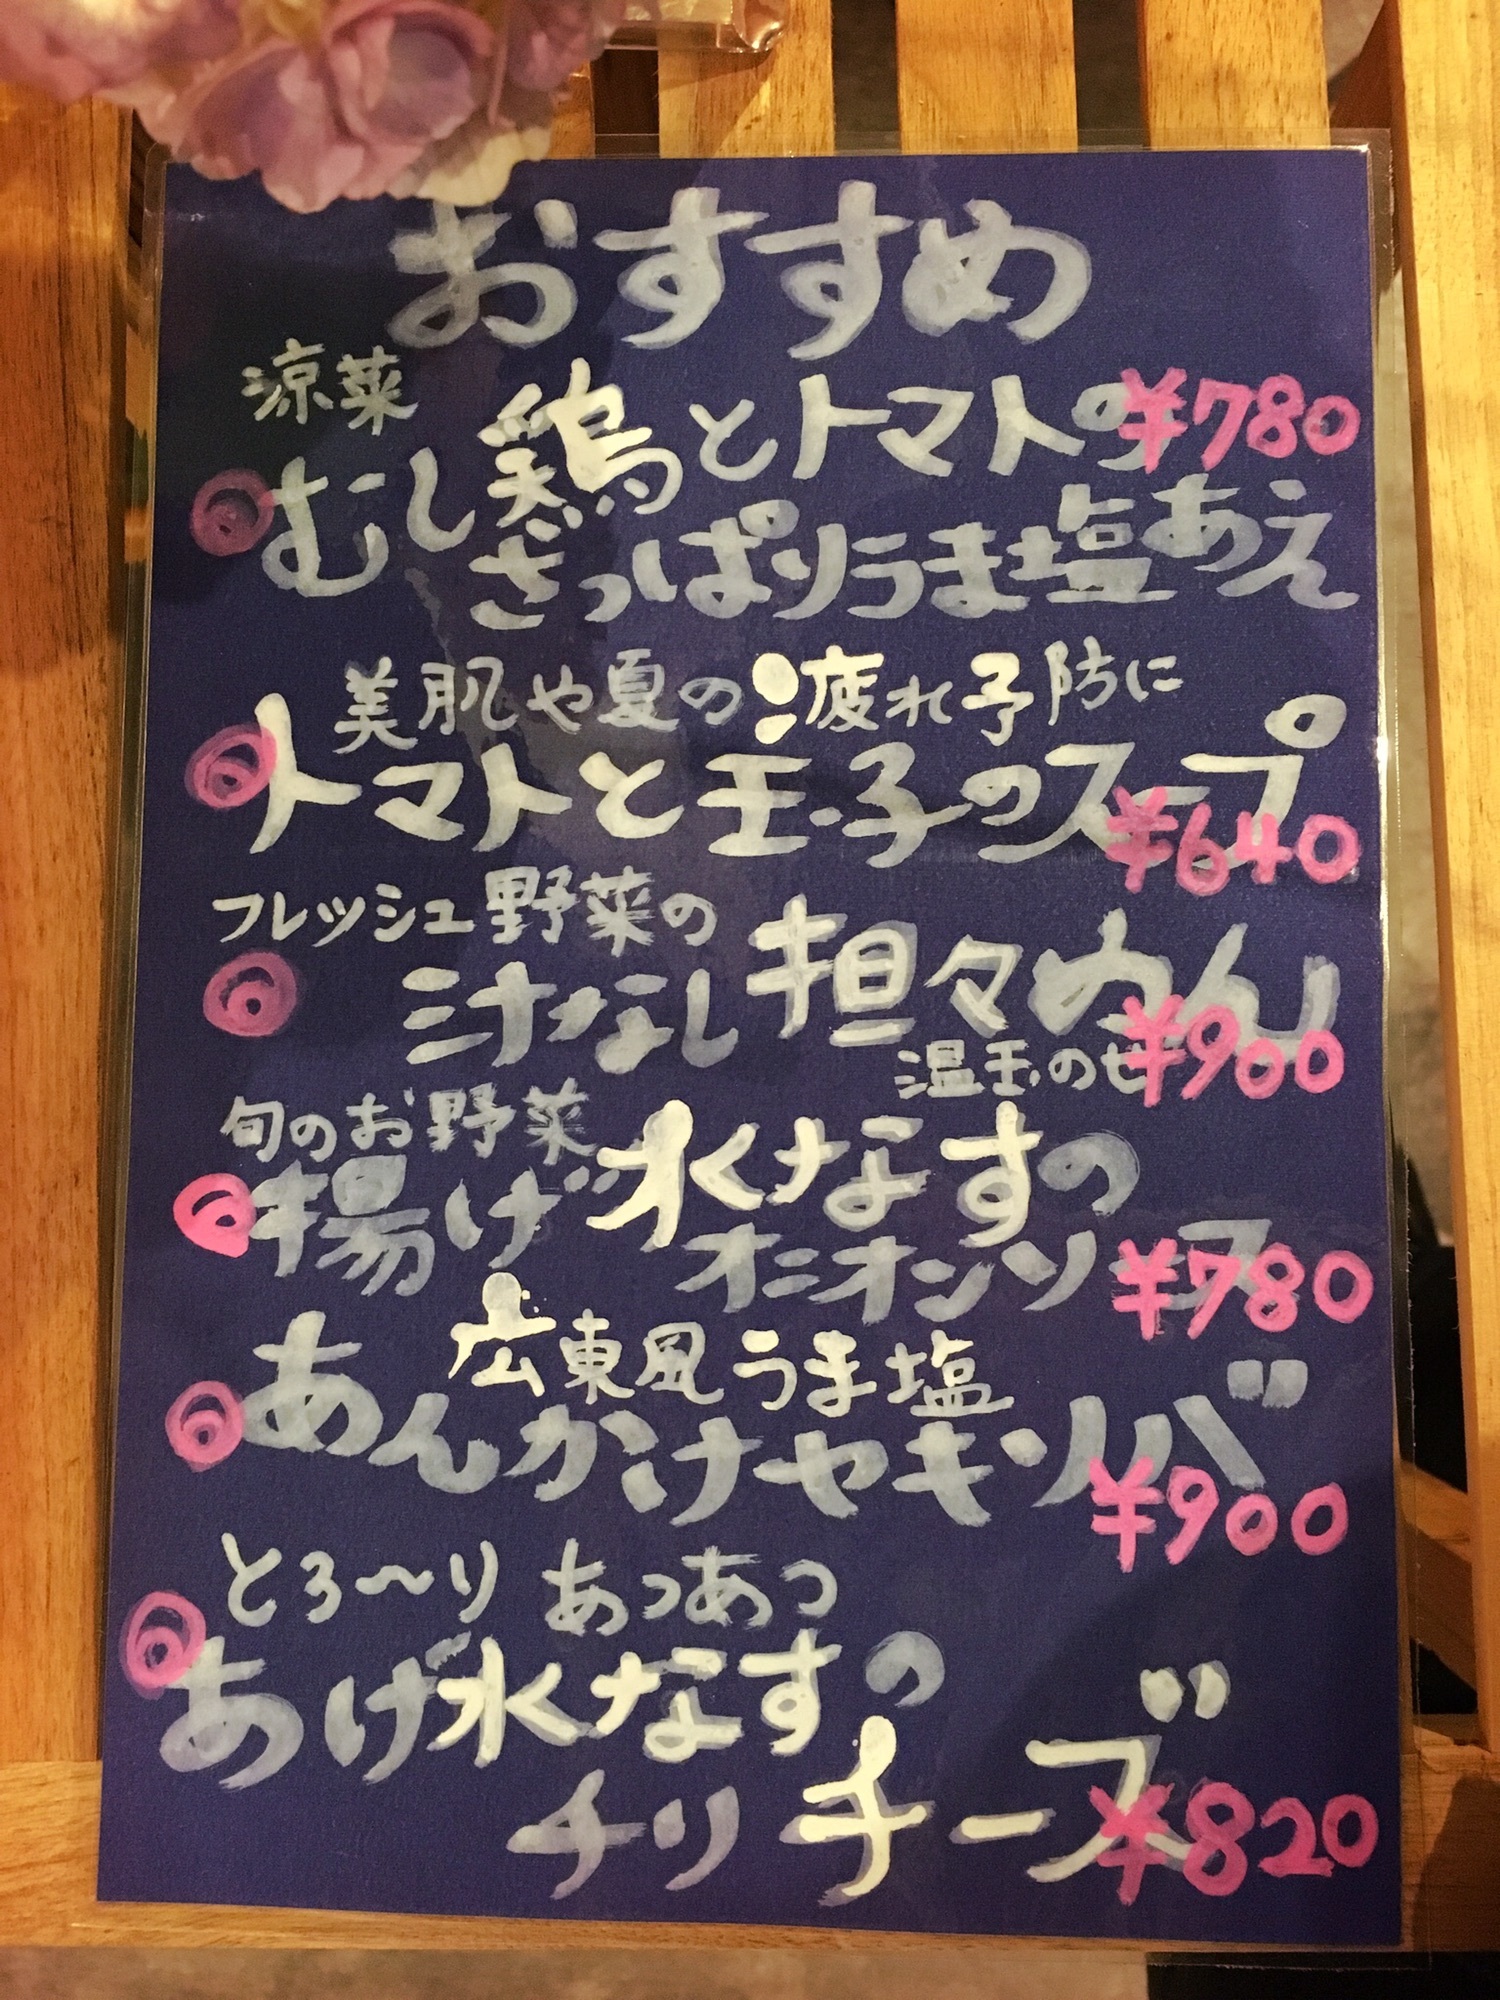 おすすめ
涼菜
むし鶏とトマトの ¥780
さっぱりうま塩あえ
美肌や夏の疲れ予防に
トマトと玉子のスープ
¥640
フレッシュ野菜の
汁なし担々めん
温玉のせ ¥900
旬のお野菜
揚げ水なすの
オニオンソース ¥780
広東風うま塩
あんかけヤキソバ
¥900
とろ〜り あつあつ
あげ水なすの
チリチーズ ¥820